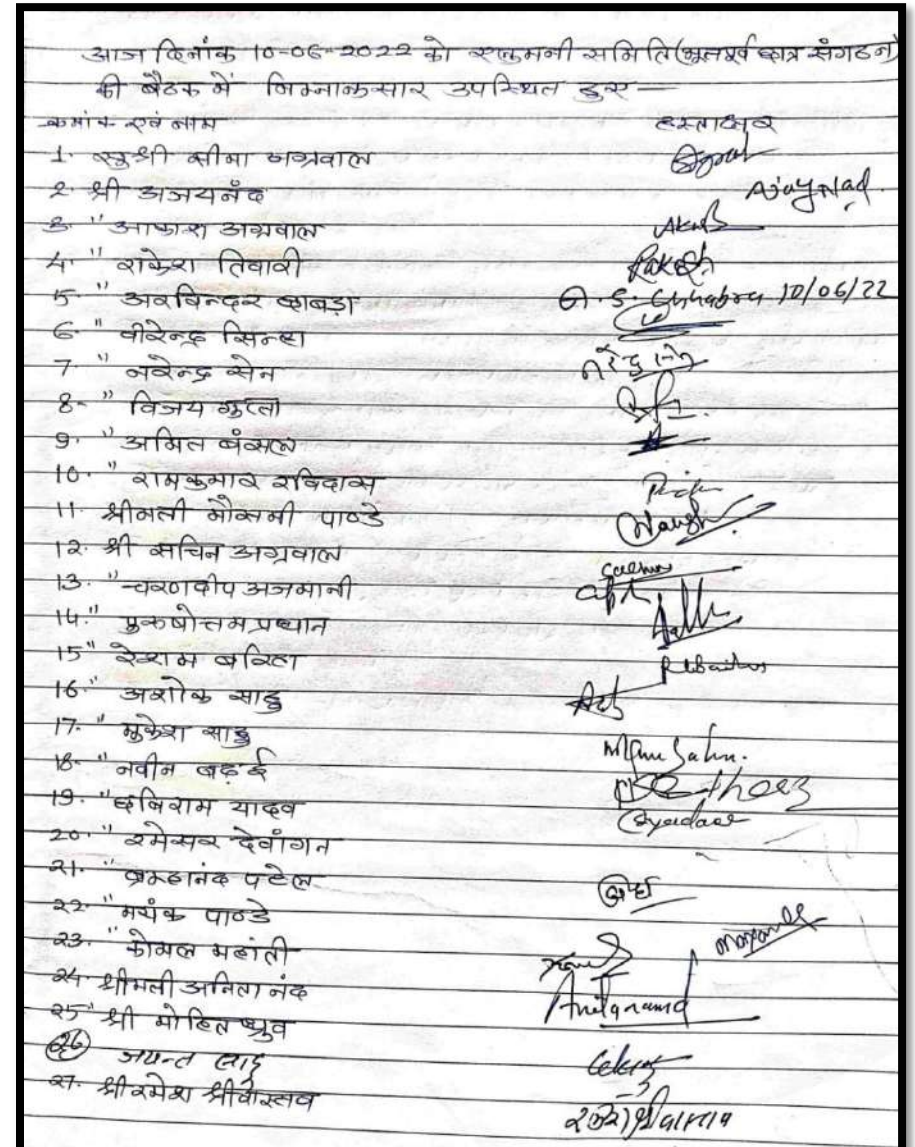 आज दिनांक 10-06-2022 को एलुमनी समिति (भूतपूर्व छात्र संगठन)
की बैठक में निम्नानुसार उपस्थित हुए —
क्रमांक एवं नाम हस्ताक्षर
1. सुश्री सीमा अग्रवाल
2. श्री अजयनंद Ajay Nad.
3. " आकाश अग्रवाल Akash
4. " राकेश तिवारी Rakesh
5. " अरविन्दर छाबड़ा G. S. Chhabra 10/06/22
6. " वीरेन्द्र सिन्हा
7. " नरेन्द्र सेन नरेन्द्र सेन
8. " विजय गुप्ता
9. " अमित बंसल
10. " रामकुमार रविदास
11. श्रीमती मौसमी पाण्डे
12. श्री सचिन अग्रवाल Sachin
13. " चरणदीप अजमानी
14. " पुरुषोत्तम प्रधान
15. " रेशम बरिहा
16. " अशोक साहु
17. " मुकेश साहु Sahu.
18. " नवीन बढ़ई
19. " छबिराम यादव Cyadaw
20. " रमेसर देवांगन
21. " ब्रम्हानंद पटेल
22. " मयंक पाण्डे
23. " कोमल महांती
24. श्रीमती अनिता नंद Anitanand
25. " श्री मोहित ध्रुव
26 जयन्त साहु
27. श्री रमेश श्रीवास्तव